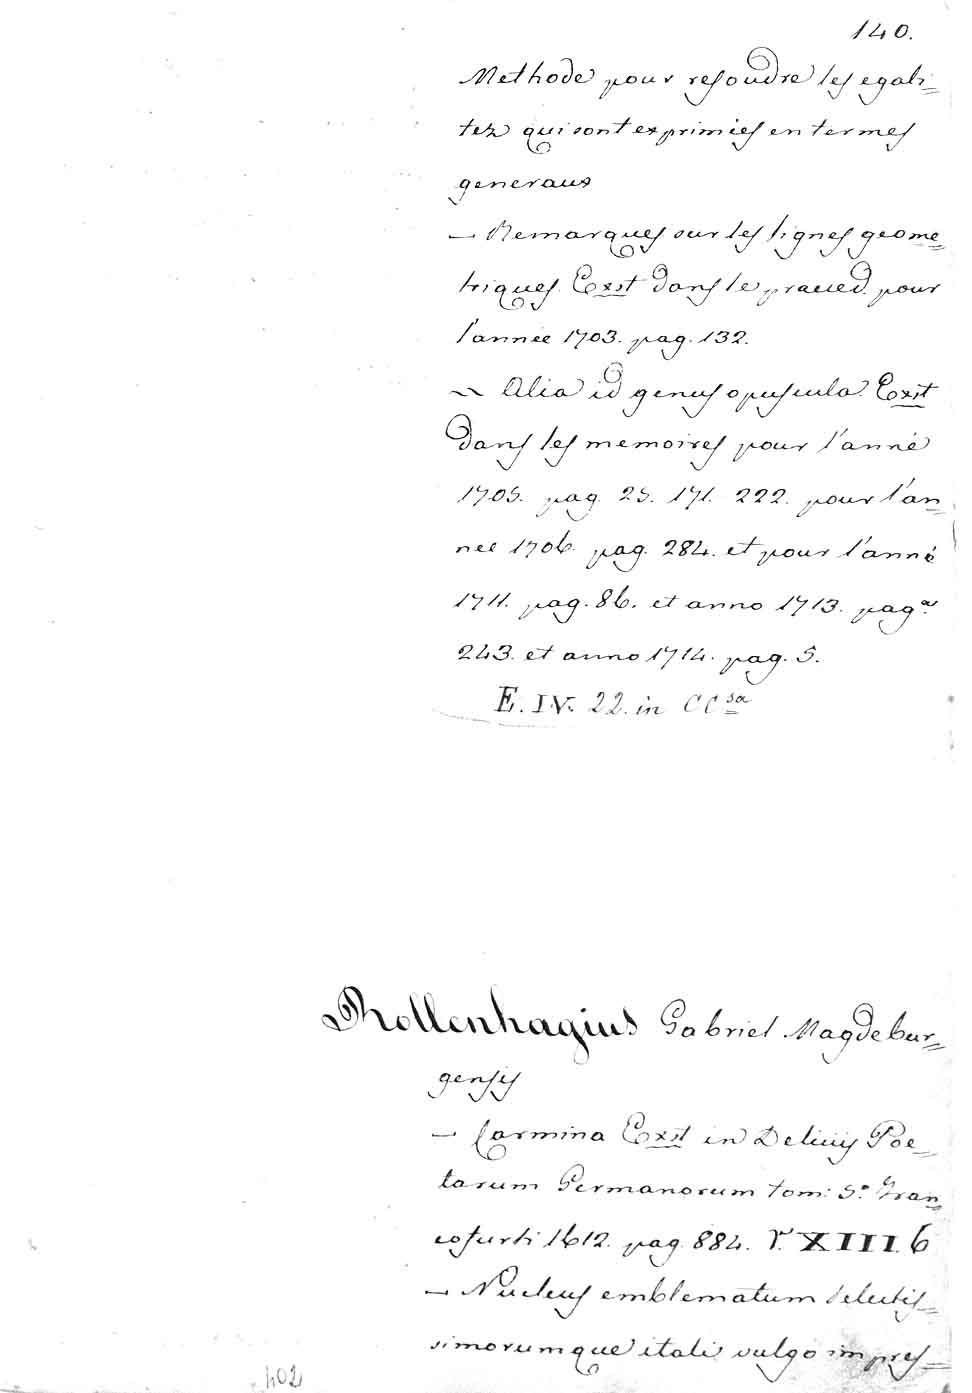 140.
Methode pour resoudre les egali=
tez qui sont exprimées en termes
generaux
— Remarques sur les lignes geome=
triques. Exst dans le praeced. pour
l'année 1703. pag. 132.
— Alia id genus opuscula. Exst
dans les memoires pour l'anné
1705. pag. 25. 171. 222. pour l'an=
nee 1706. pag. 284. et pour l'anné
1711. pag. 86. et anno 1713. pag.a
243. et anno 1714. pag. 5.
E. IV. 22. in CCsa
Rollenhagius Gabriel Magdebur=
gensis
— Carmina Exst in Delitijs Poe=
tarum Germanorum tom: 5.o Fran=
cofurti 1612. pag. 884. V. XIII. 6
— Nucleus emblematum selectis=
simorumque itali vulgo impres=
402